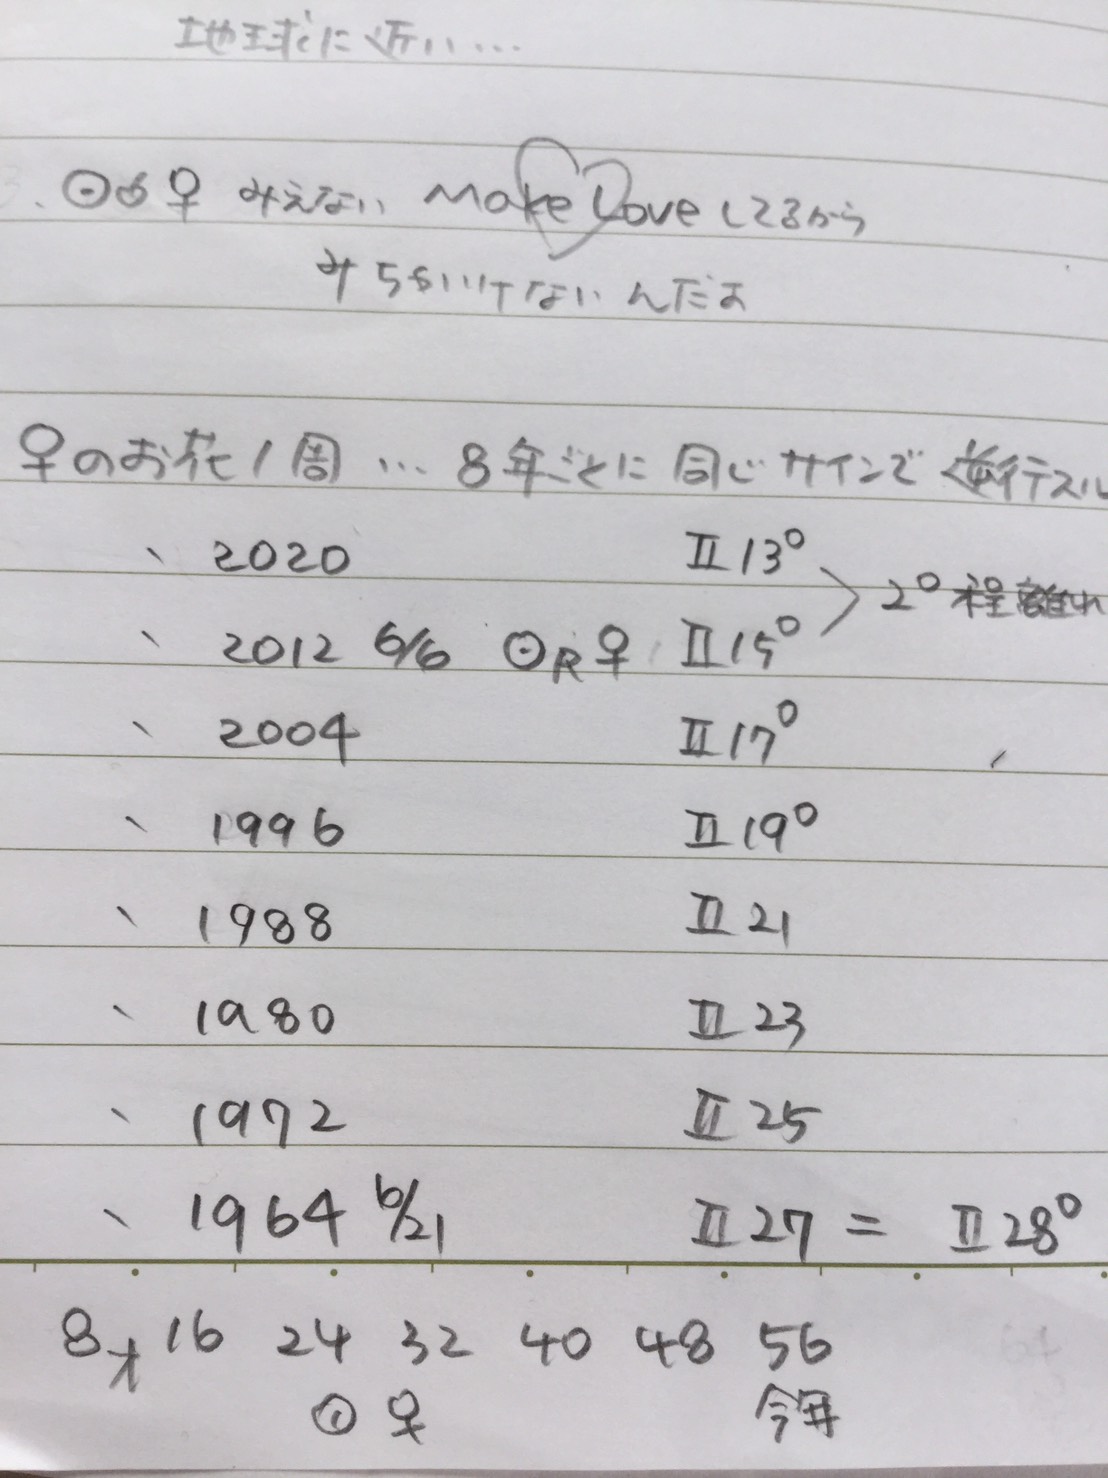 地球に近い…
3. ☉☌♀ みえない Make Loveしてるから
みちゃいけないんだよ
♀のお花1周 … 8年ごとに同じサインで逆行スル
、 2020 Ⅱ13° 2°程離れ
、 2012 6/6 ☉R♀ Ⅱ15°
、 2004 Ⅱ17°
、 1996 Ⅱ19°
、 1988 Ⅱ21
、 1980 Ⅱ23
、 1972 Ⅱ25
、 1964 6/21 Ⅱ27 = Ⅱ28°
8才 16 24 32 40 48 56
☉ ♀ 今年